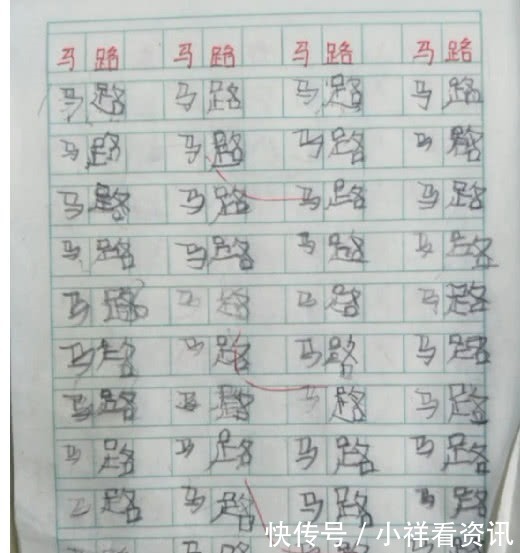 马路 马路 马路 马路
马路 马路 马路 马路
马路 马路 马路 马路
马路 马路 马路 马路
马路 马路 马路 马路
马路 马路 马路 马路
马路 马路 马路 马路
马路 马路 马路 马路
马路 马路 马路 马路
马路 马路 马路 马路
快传号 / 小祥看资讯